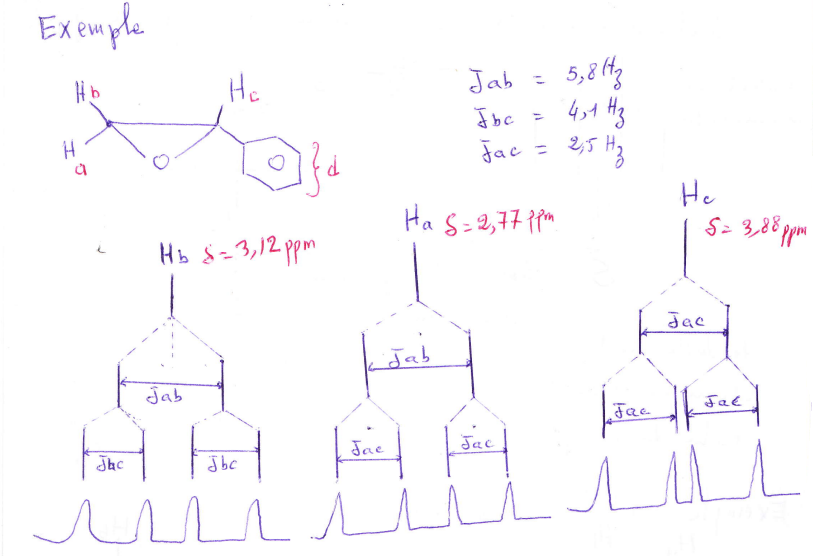 Exemple
Hb Hc
Ha
O
O
d
Jab = 5,8 Hz
Jbc = 4,1 Hz
Jac = 2,5 Hz
Hb δ=3,12 ppm
Jab
Jbc Jbc
Ha δ=2,77 ppm
Jab
Jac Jac
Hc
δ= 3,88 ppm
Jac
Jac Jac